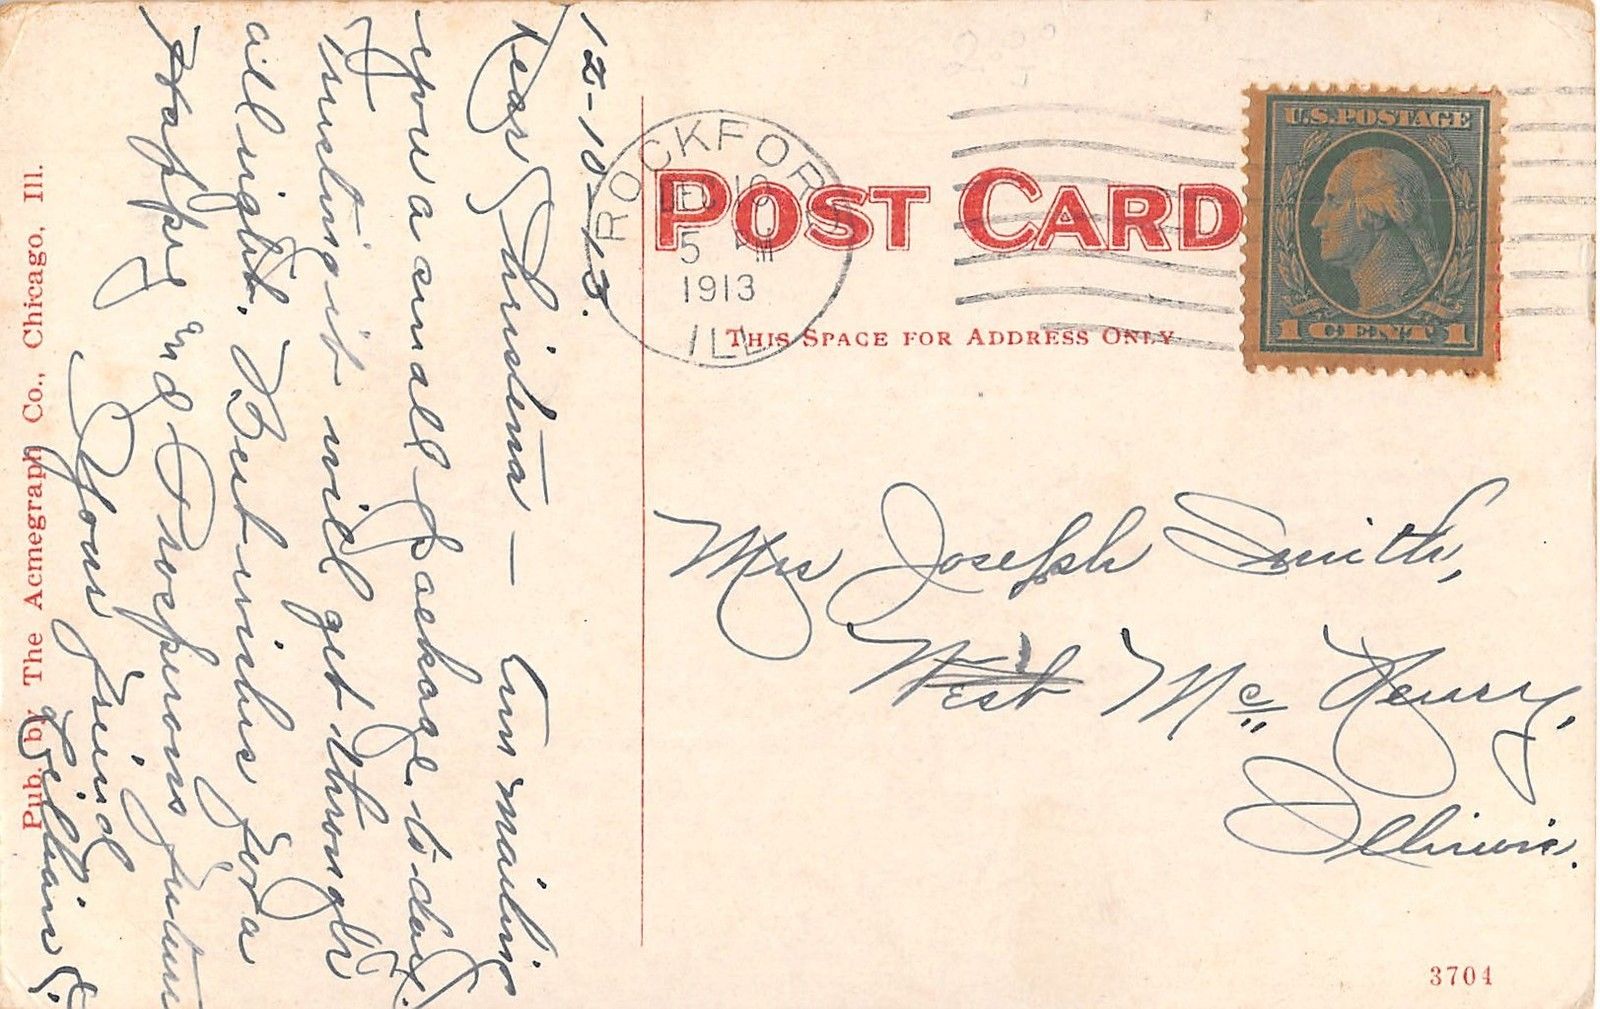 12-10-13.
Dear Christina — Am mailing
you a small package to-day.
Trusting it will get through
all right. Best wishes for a
Happy and Prosperous future
Your friend
Lillian
Pub. by The Acmegraph Co., Chicago, Ill.
ROCKFORD
DEC 10
5 PM
1913
ILL
POST CARD
THIS SPACE FOR ADDRESS ONLY
U.S. POSTAGE
1 CENT 1
Mrs Joseph Smith,
West Mc Henry,
Illinois.
3704